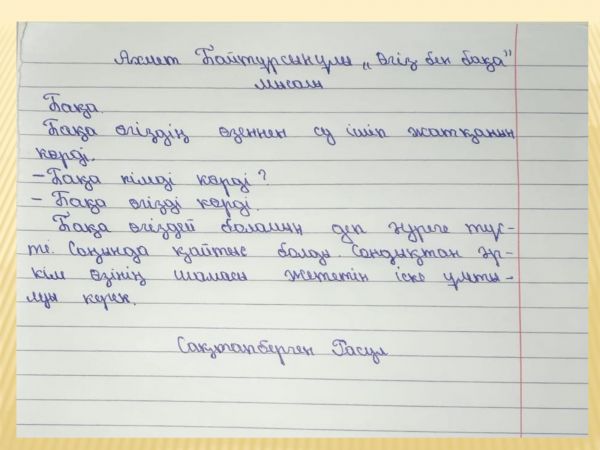 Ахмет Байтұрсынұлы „Өгіз бен бақа"
мысалы
Бақа.
Бақа өгіздің өзеннен су ішіп жатқанын
көрді.
– Бақа кімді көрді?
– Бақа өгізді көрді.
Бақа өгіздей боламын деп әуреге түс-
ті. Соңында қайтыс болды. Сондықтан әр-
кім өзінің шамасы жететін іске ұмты-
луы керек.
Сақтапберген Расул